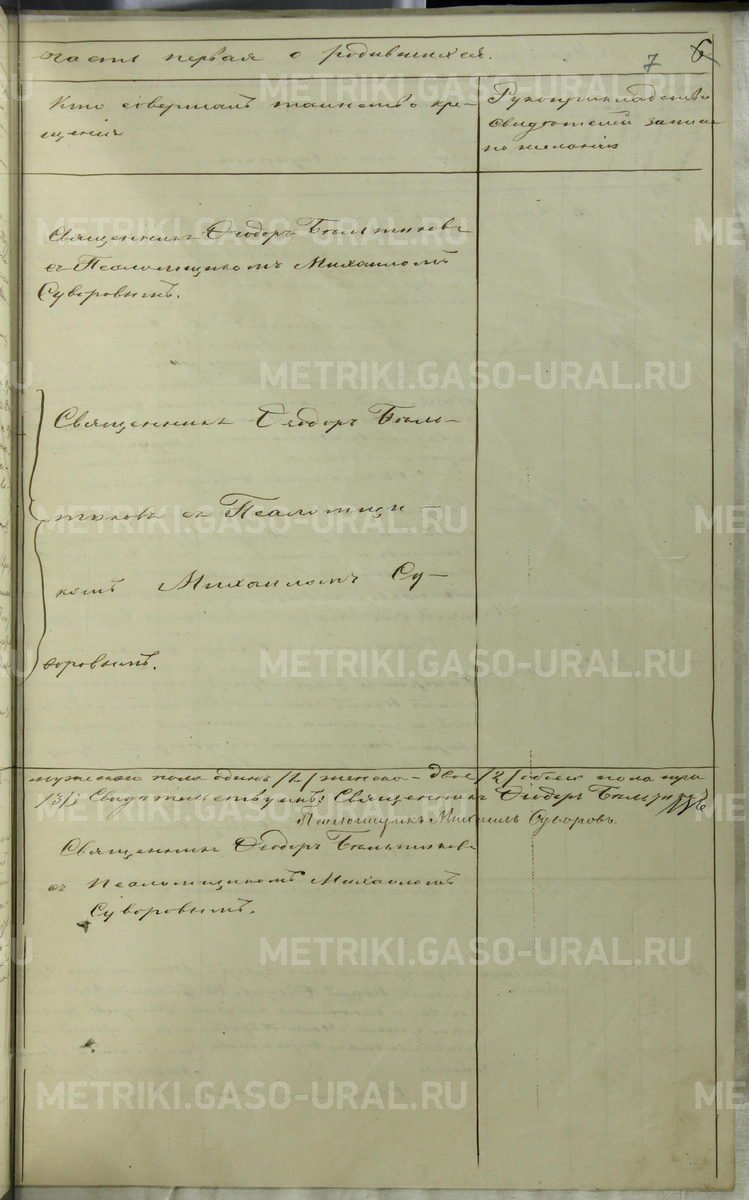 часть первая о родившихся. 7 6
Кто совершалъ таинство кре-
щенія
Рукоприкладство
свидѣтелей записи
по желанію
Священникъ Ѳеодоръ
съ Псаломщикомъ Михаиломъ
Суворовымъ.
Священникъ Ѳеодоръ
съ Псаломщи-
комъ Михаиломъ Су-
воровымъ.
мужескаго пола одинъ /1/ женска- двое /2/ обоего пола три
/3/: Свидѣтельствуемъ: Священникъ Ѳеодоръ
Псаломщикъ Михаилъ Суворовъ.
Священникъ Ѳеодоръ
съ Псаломщикомъ Михаиломъ
Суворовымъ.
METRIKI.GASO-URAL.RU